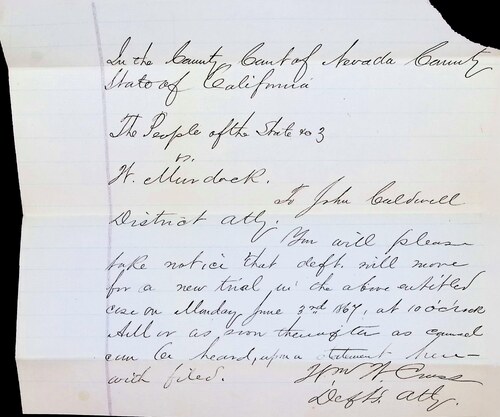 In the County Court of Nevada County
State of California
The People of the State &c }
vs.
W. Murdock.
To John Caldwell
District Atty.
You will please
take notice that deft. will move
for a new trial in the above entitled
case on Monday June 3rd 1867, at 10 o'clock
A.M. or as soon thereafter as counsel
can be heard, upon a statement here-
with filed.
Wm W. Cross
Deft's. Atty.